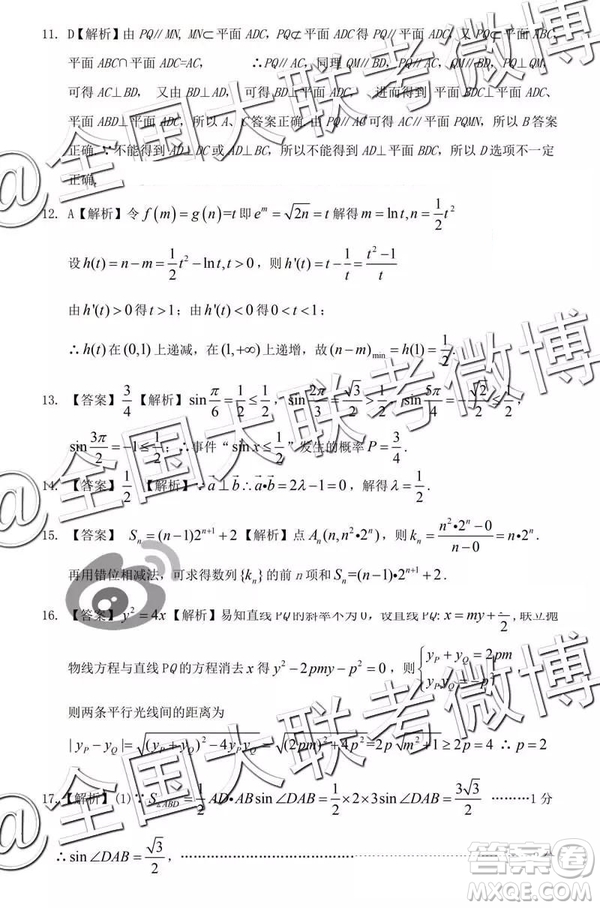 11. D【解析】由 PQ∥MN, MN⊂平面 ADC, PQ⊄平面 ADC 得 PQ∥平面 ADC, 又 PQ⊂平面 ABC,
平面 ABC∩平面 ADC=AC, ∴PQ∥AC, 同理 QM∥BD, PQ∥AC, QM∥BD, PQ⊥QM,
可得 AC⊥BD, 又由 BD⊥AD, 可得 BD⊥平面 ADC, 进而得到 平面 BCD⊥平面 ADC,
平面 ABD⊥平面 ADC, 所以 A、C 答案正确. 由 PQ∥AC 可得 AC∥平面 PQMN, 所以 B 答案
正确. ∵不能得到 AD⊥DC 或 AD⊥BC, 所以不能得到 AD⊥平面 BDC, 所以 D 选项不一定
正确.
12. A【解析】令 f(m)=g(n)=t 即 e^m=√(2n)=t 解得 m=ln t, n=1/2 t²
设 h(t)=n−m=1/2 t²−ln t, t>0, 则 h'(t)=t−1/t=(t²−1)/t
由 h'(t)>0 得 t>1; 由 h'(t)<0 得 0<t<1;
∴h(t) 在 (0,1) 上递减, 在 (1,+∞) 上递增, 故 (n−m)min=h(1)=1/2.
13. 【答案】3/4【解析】sin π/6=1/2≤1/2, sin 2π/3=√3/2>1/2, sin 5π/4=−√2/2≤1/2,
sin 3π/2=−1≤1/2; ∴事件“sin x≤1/2”发生的概率 P=3/4.
14. 【答案】1/2 【解析】∵a⊥b∴a•b=2λ−1=0, 解得 λ=1/2.
15. 【答案】 Sₙ=(n−1)2^(n+1)+2【解析】点 Aₙ(n,n²•2ⁿ), 则 kₙ=(n²•2ⁿ−0)/(n−0)=n•2ⁿ.
再用错位相减法, 可求得数列{kₙ}的前 n 项和 Sₙ=(n−1)•2^(n+1)+2.
16. 【答案】y²=4x【解析】易知直线 PQ 的斜率不为 0, 设直线 PQ: x=my+p/2, 联立抛
物线方程与直线 PQ 的方程消去 x 得 y²−2pmy−p²=0, 则 {y_P+y_Q=2pm
则两条平行光线间的距离为
|y_P−y_Q|=√((y_P+y_Q)²−4y_P y_Q)=√((2pm)²+4p²)=2p√(m²+1)≥2p=4 ∴p=2
17. 【解析】(1)∵S△ABD=1/2 AD•AB sin∠DAB=1/2×2×3sin∠DAB=3√3/2 ………1 分
∴sin∠DAB=√3/2,
@全国大联考微博
@全国大联考微博
@全国大联考微博
答案圈
MXQE.COM